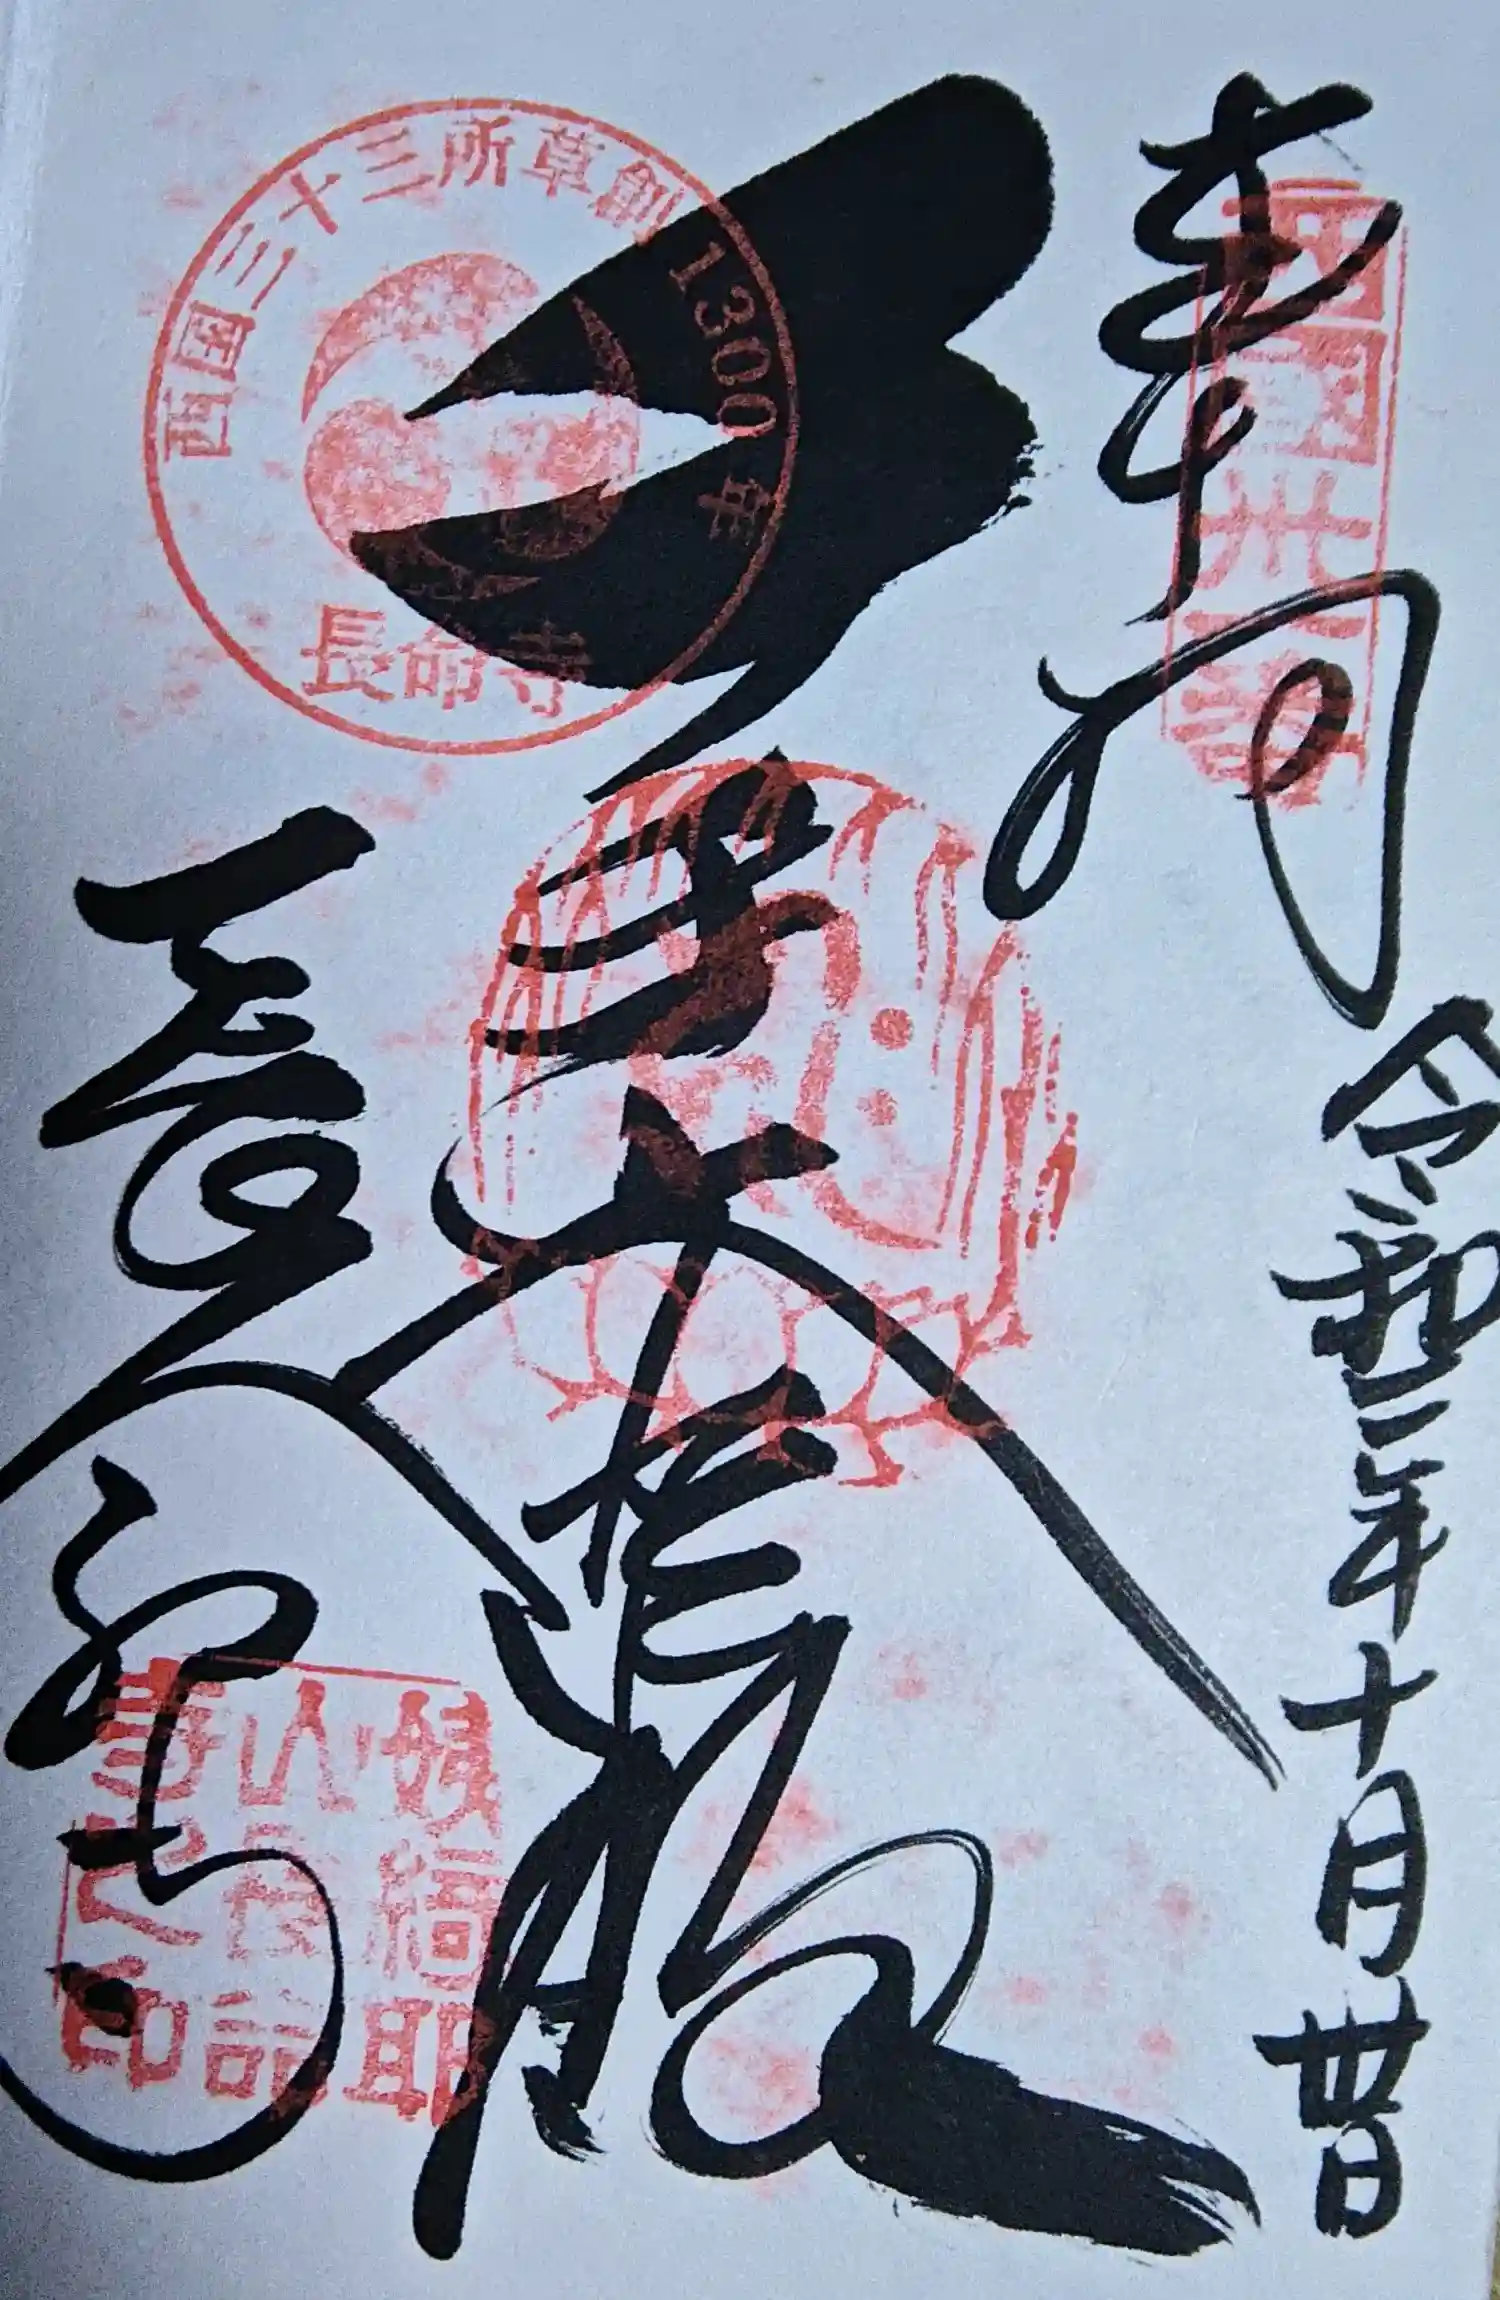 奉拝
西國卅一番
令和二年十月廿日
千手大悲殿
西国三十三所草創1300年
長命寺
長命寺
姨綺耶
山長命
寺之印